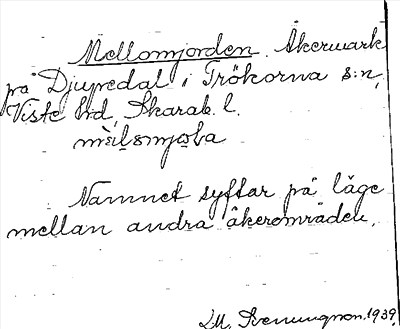 Mellomjorden. Åkermark
på Djupedal i Trökörna s:n,
Viste hd, Skarab. l.
Namnet syftar på läge
mellan andra åkerområden.
1939.